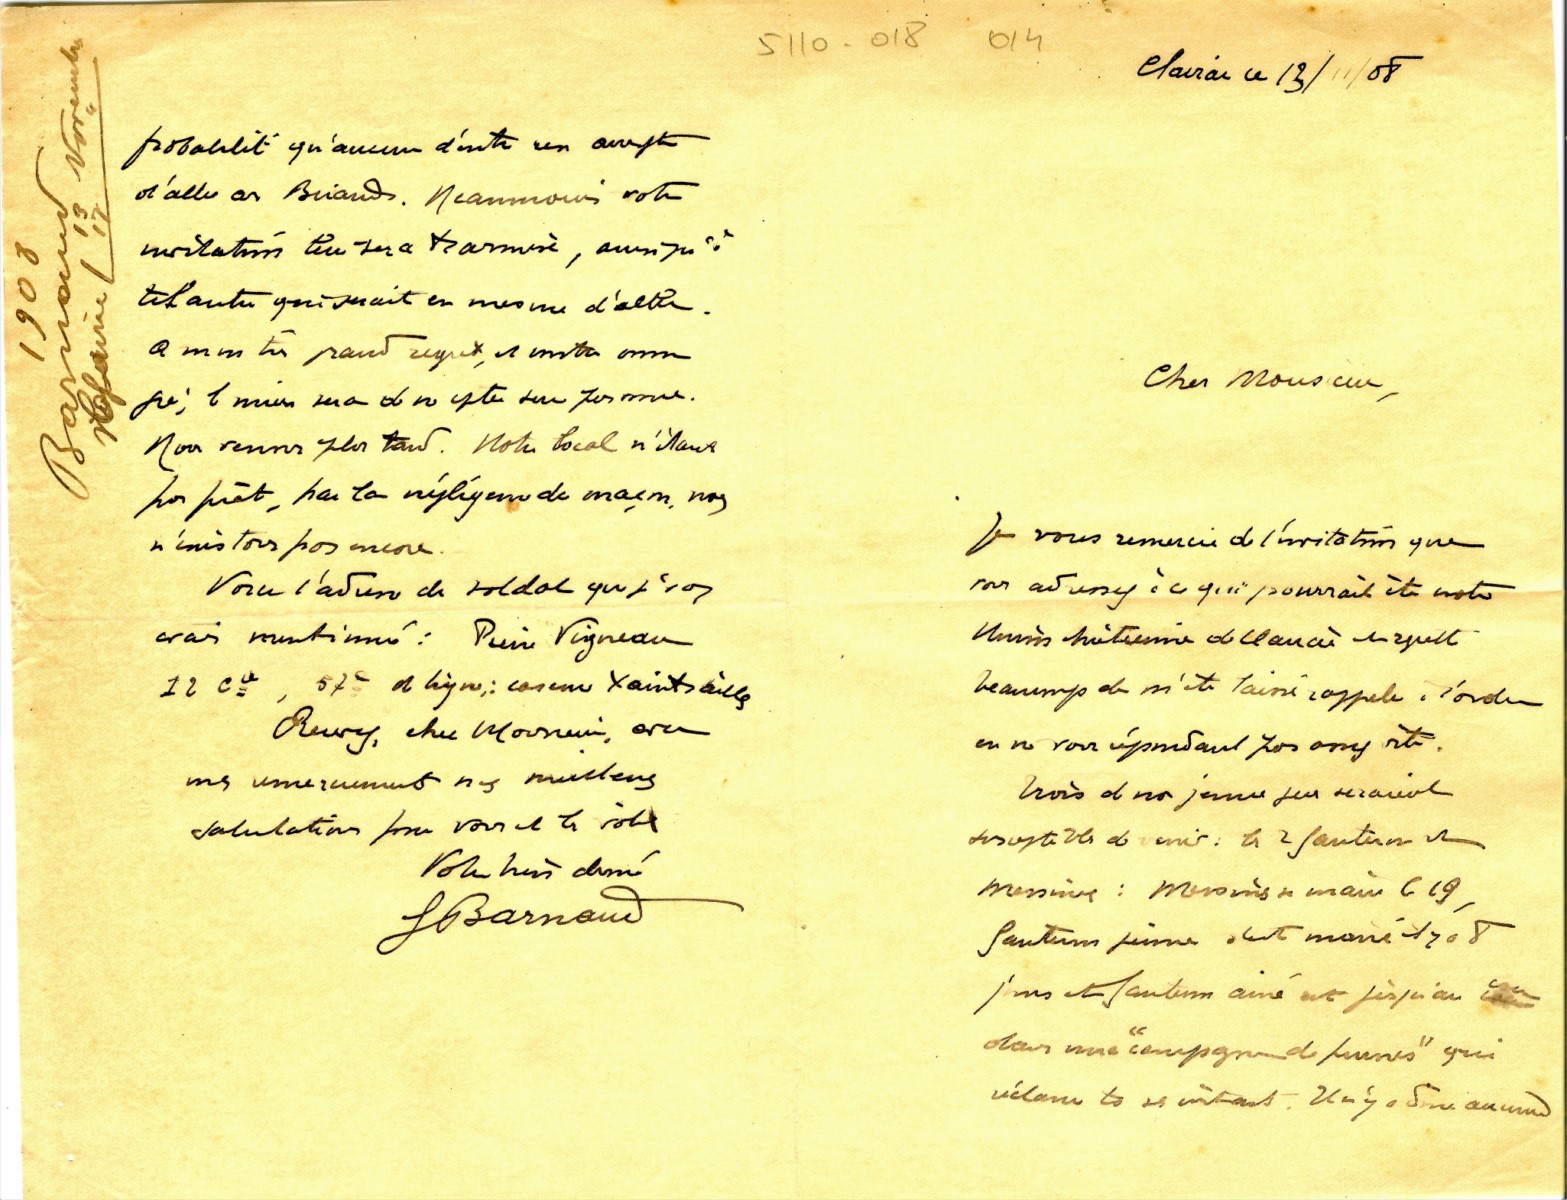 5110-018 014
Clairac ce 13/11/08
Cher Monsieur,
Je vous remercie de l'invitation que
vous adressez à ce qui pourrait être notre
Union chrétienne de Clairac et regrette
beaucoup de m'être laissé rappeler à l'ordre
en ne vous répondant pas assez vite.
Trois de nos jeunes gens seraient
susceptibles de venir : les 2 Gauteron et
Messines : Messines se marie le 19,
Gauteron jeune doit marié 17 ou 8
jours et Gauteron ainé est jusqu'au
dans une "campagne de prunes" qui
réclame ts ses instants. Il n'y a donc aucune
probabilité qu'aucun d'entre eux accepte
d'aller aux Briands. Néanmoins votre
invitation leur sera transmise, ainsi qu'à
tel autre qui serait en mesure d'aller.
A mon très grand regret, et contre mon
gré, le mieux sera de ne compter sur personne.
Nous verrons plus tard. Notre local n'étant
pas prêt, par la négligence de maçon, nous
n'existons pas encore.
Voici l'adresse du soldat que je vous
avais mentionné : Pierre Vigneau
12 Cie, 57e de ligne ; caserne Xaintrailles
Recevez, cher Monsieur, avec
mes remerciements nos meilleures
salutations pour vous et les vôtres
Votre bien dévoué
J Barnaud
1908
Barnaud
Clairac 13 Novembre
17 "